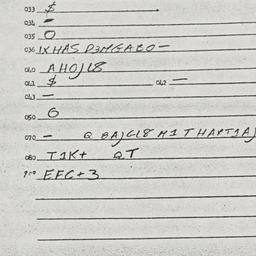 033 $
034 -
035 O
036 1XHAS D3MGAEO-
040 AHOJL8
041 $ 042 -
043 -
050 6
070 - Q BAJCL8 M1T HAPT1AJ
080 T1K+ QT
900 EFG+3